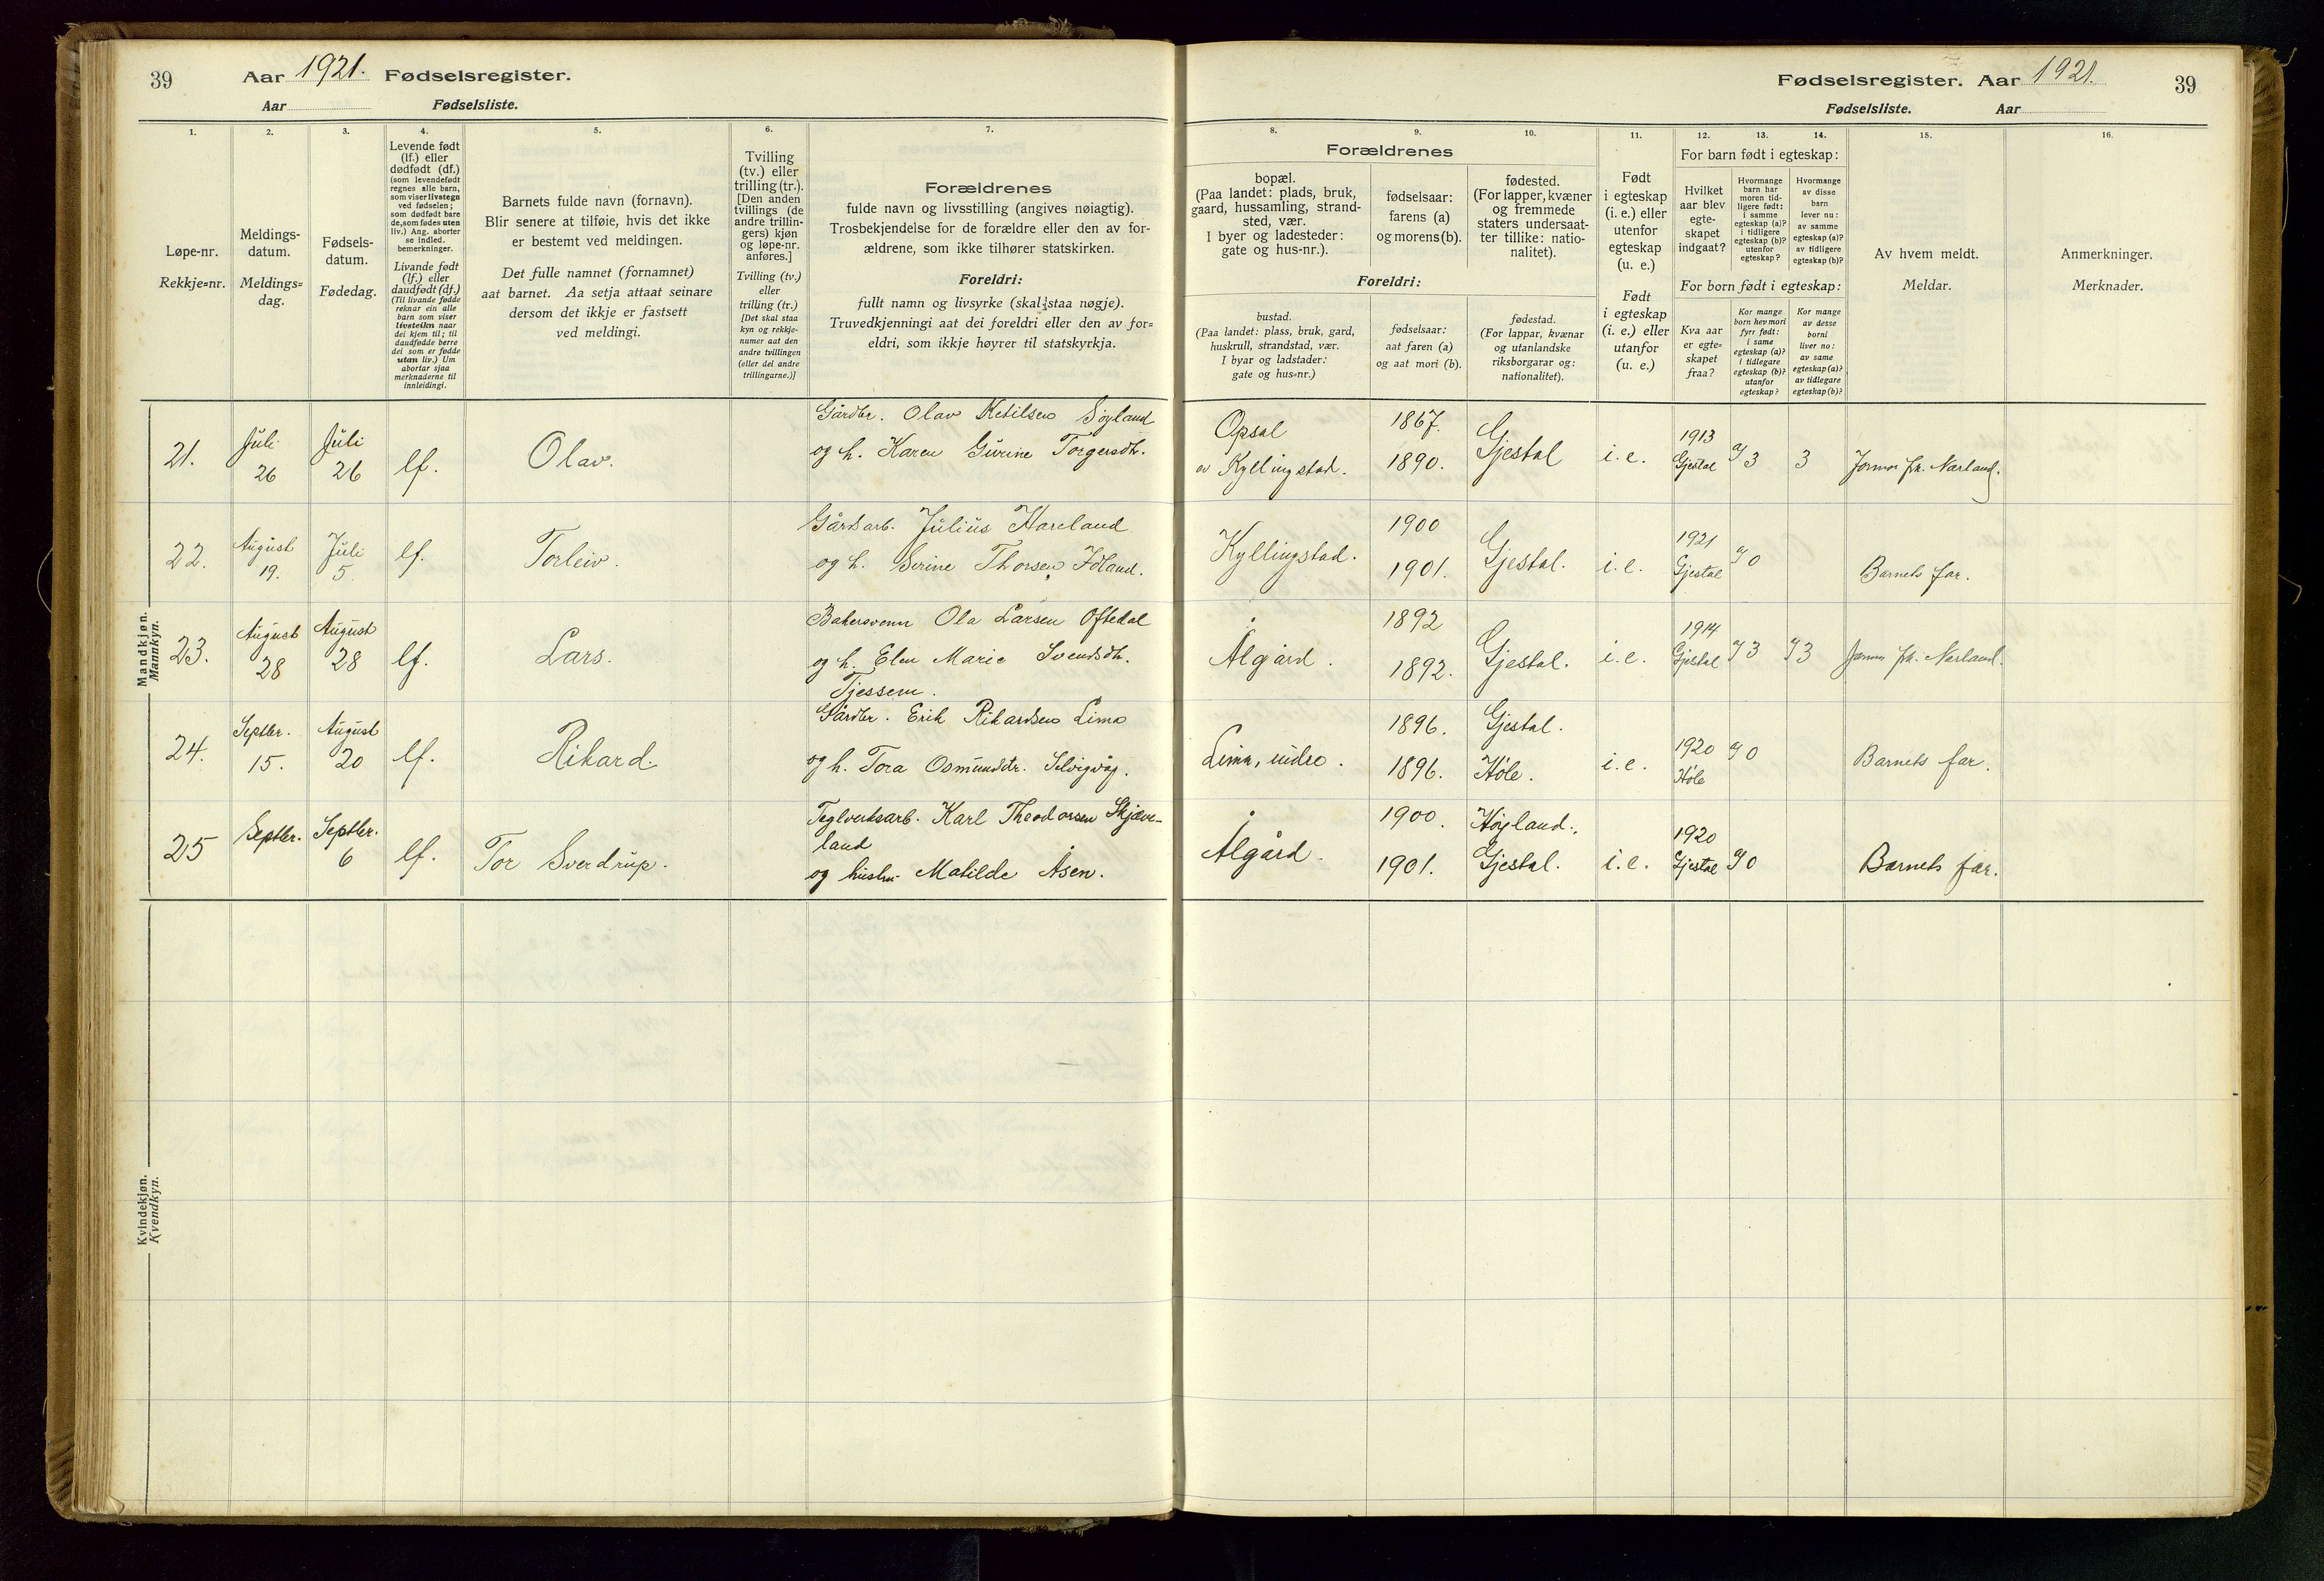 39 Aar 1921. Fødselsregister.
Aar Fødselsliste.
Fødselsregister. Aar 1921. 39
Fødselsliste. Aar
1. 2. 3. 4. 5. 6. 7.
Løpe-nr.
Rekkje=nr.
Meldings-
datum.
Meldings=
dag.
Fødsels-
datum.
Fødedag.
Levende født
(lf.) eller
dødfødt (df.)
(som levendefødt
regnes alle barn,
som viser livstegn
ved fødselen;
som dødfødt bare
de, som fødes uten
liv.) Ang. aborter
se indled.
bemerkninger.
Livande født
(lf.) eller
daudfødt (df.)
(Til livande fødde
reknar ein alle
barn som viser
livsteikn naar
dei kjem til; til
daudfødde berre
dei som er fødde
utan liv.) Um
abortar sjaa
merknaderne til
innleidingi.
Barnets fulde navn (fornavn).
Blir senere at tilføie, hvis det ikke
er bestemt ved meldingen.
Det fulle namnet (fornamnet)
aat barnet. Aa setja attaat seinare
dersom det ikkje er fastsett
ved meldingi.
Tvilling
(tv.) eller
trilling (tr.).
[Den anden
tvillings (de
andre trillin-
gers) kjøn
og løpe-nr.
anføres.]
Tvilling (tv.)
eller
trilling (tr.)
[Det skal staa
kyn og rekkje-
numer aat den
andre tvillingen
(eller dei andre
trillingarne.)]
Forældrenes
fulde navn og livsstilling (angives nøiagtig).
Trosbekjendelse for de forældre eller den av for-
ældrene, som ikke tilhører statskirken.
Foreldri:
fullt namn og livsyrke (skal staa nøgje).
Truvedkjenningi aat dei foreldri eller den av for=
eldri, som ikkje høyrer til statskyrkja.
8. 9. 10. 11. 12. 13. 14. 15. 16.
Forældrenes
bopæl.
(Paa landet: plads, bruk,
gaard, hussamling, strand-
sted, vær.
I byer og ladesteder:
gate og hus-nr.).
fødselsaar:
farens (a)
og morens (b).
fødested.
(For lapper, kvæner
og fremmede
staters undersaat-
ter tillike: natio-
nalitet).
Foreldri:
bustad.
(Paa landet: plass, bruk, gard,
huskrull, strandstad, vær.
I byar og ladstader:
gate og hus=nr.)
fødselsaar:
aat faren (a)
og aat mori (b).
fødestad.
(For lappar, kvænar
og utanlandske
riksborgarar og:
nationalitet).
Født
i egteskap
(i. e.) eller
utenfor
egteskap
(u. e.)
Født
i egteskap
(i. e.) eller
utanfor
(u. e.)
For barn født i egteskap:
Hvilket
aar blev
egte-
skapet
indgaat?
Hvormange
barn har
moren tid-
ligere født:
i samme
egteskap (a)?
i tidligere
egteskap (b)?
utenfor
egteskap?
Hvormange
av disse
barn
lever nu:
av samme
egteskap (a)?
av tidligere
egteskap (b)?
For born født i egteskap:
Kva aar
er egte=
skapet
fraa?
Kor mange
born hev mori
fyrr født:
i same
egteskap (a)?
i tidlegare
egteskap (b)?
utanfor
egteskap?
Kor mange
av desse
borni
liver no:
av same
egteskap (a)?
av tidlegare
egteskap (b)?
Av hvem meldt.
Meldar.
Anmerkninger.
Merknader.
Mandkjøn.
Mannkyn.
21. Juli 26 Juli 26 lf. Olav.
Gårdbr. Olav Ketilsen Søyland
og h. Karen Gurine Torgersdtr.
Opsal
av Kyllingstad. 1867. 1890. Gjestal i. e. 1913 Gjestal 3 3 Jormor fr. Narland.
22. August 19. Juli 5. lf. Torleiv.
Gårdsarb. Julius Hareland
og h. Serine Thorsen Idland.
Kyllingstad. 1900 1901. Gjestal. i. e. 1921 Gjestal 0 Barnets far.
23. August 28 August 28 lf. Lars.
Bakersvenn Ola Larsen Oftedal
og h. Elen Marie Svendsdtr.
Tjessem.
Ålgård. 1892 1892. Gjestal. i. e. 1914 Gjestal 3 3 Jormor fr. Narland.
24. Septbr. 15. August 20 lf. Rikard.
Gårdbr. Erik Rikardsen Lima
og h. Tora Osmundstr. Selvigvåg.
Lima, indre. 1896. 1896. Gjestal. Høle. i. e. 1920 Høle 0 Barnets far.
25 Septbr. Septbr. 6 lf. Tor Sverdrup.
Teglverksarb. Karl Theodorsen Skjæve-
land
og hustru Matilde Åsen.
Ålgård. 1900. 1901. Høyland. Gjestal. i. e. 1920 Gjestal 0 Barnets far.
Kvindekjøn.
Kvendkyn.